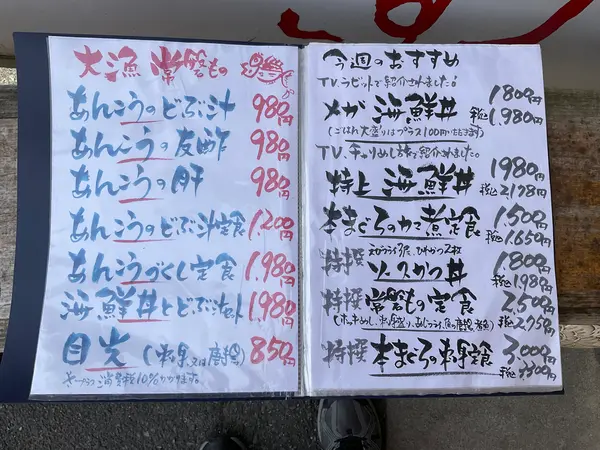 大漁 常磐もの
あんこうのどぶ汁 980円
あんこうの友酢 980円
あんこうの肝 980円
あんこうのどぶ汁定食 1,200円
あんこうづくし定食 1,980円
海鮮丼とどぶ汁セット 1,980円
目光 (刺身又は唐揚) 850円
消費税10%かかります。
今週のおすすめ
T.V.ラビットで紹介されました。
1800円
メガ 海鮮丼 税込1,980円
(ごはん大盛りはプラス100円いただきます)
1980円
特上 海鮮丼 税込2,178円
本まぐろのカマ煮定食 1,500円
税込1,650円
特撰 ソースカツ丼 1,800円
税込1,980円
特撰 常磐もの定食 2,500円
特撰 本まぐろの刺身定食 3,000円
税込3,300円